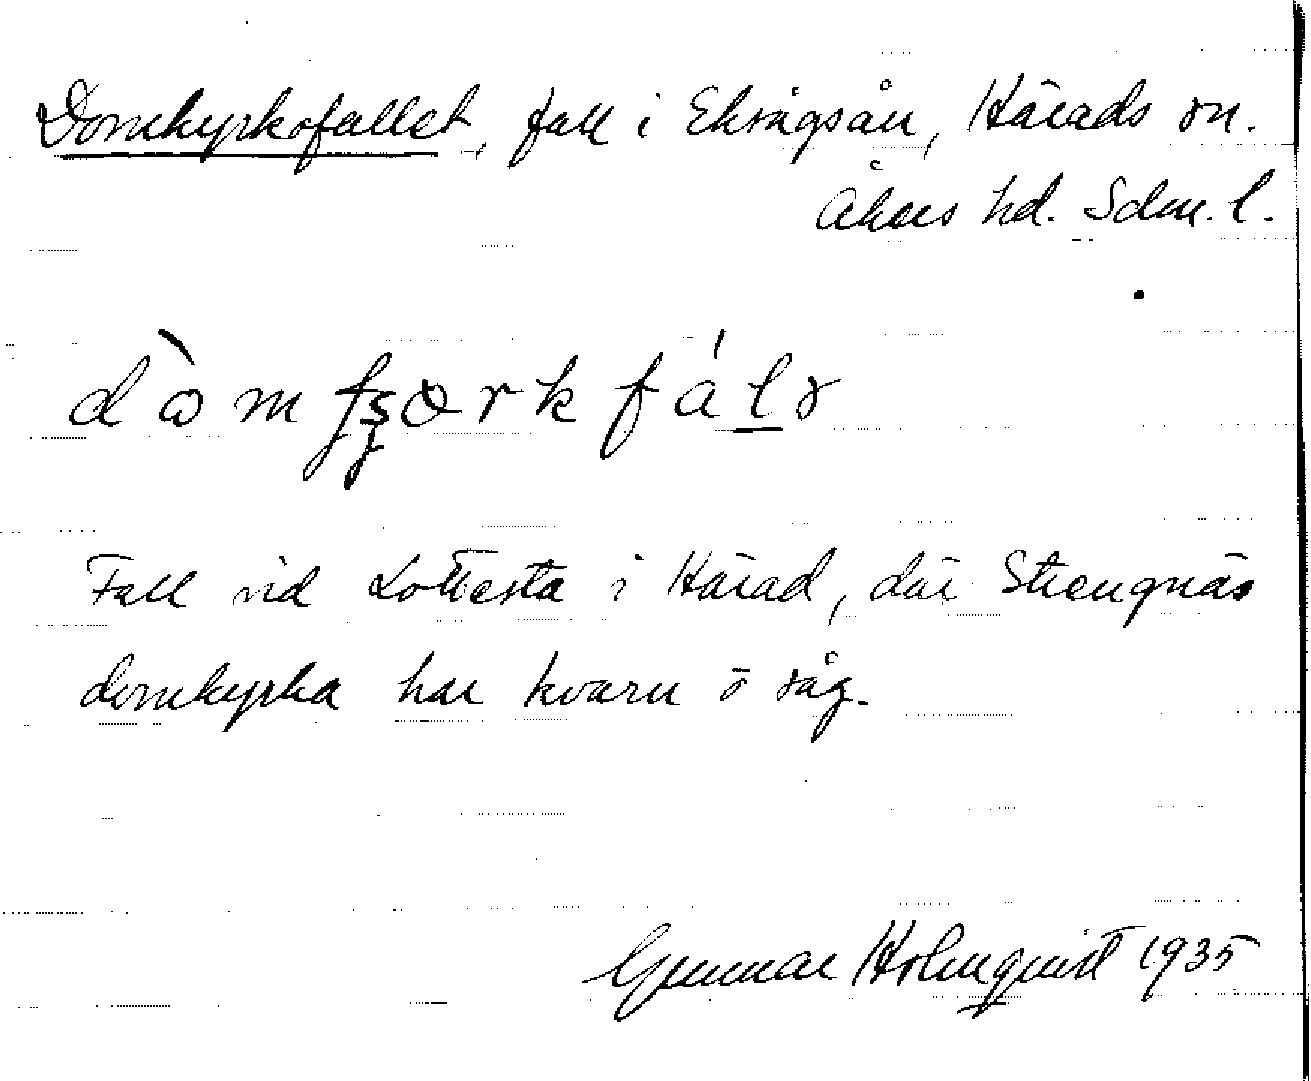 Domkyrkofallet, fall i Eksågsån, Härads sn.
Åkers hd. Sdm. l.
Fall vid Lottesta i Härad, där Strengnäs
domkyrka har kvarn o såg.
Gunnar Holmquist 1935